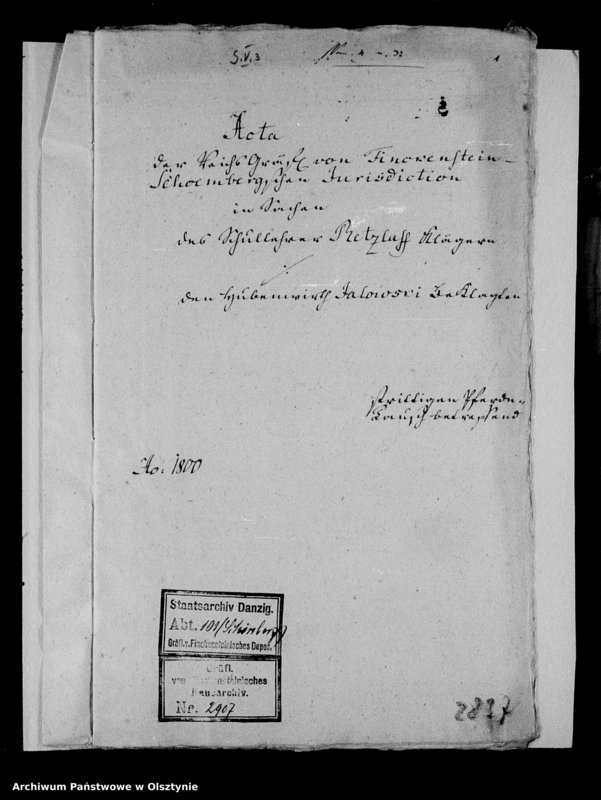 S.V.3
n. 32
1
Acta
der Reichs Gräfl. von Finckenstein-
Schoembergschen Jurisdiction
in Sachen
des Schullehrer Retzlaff Klägern
den Hubenwirth Jalowski Beklagten
strittigen Pferde-
betreffend
Ao: 1800
Staatsarchiv Danzig.
Abt.
Gräfl. v. Finckensteinisches Depos.
Gräfl.
von Finckensteinisches
Hausarchiv.
Nr. 2907
2837
Archiwum Państwowe w Olsztynie